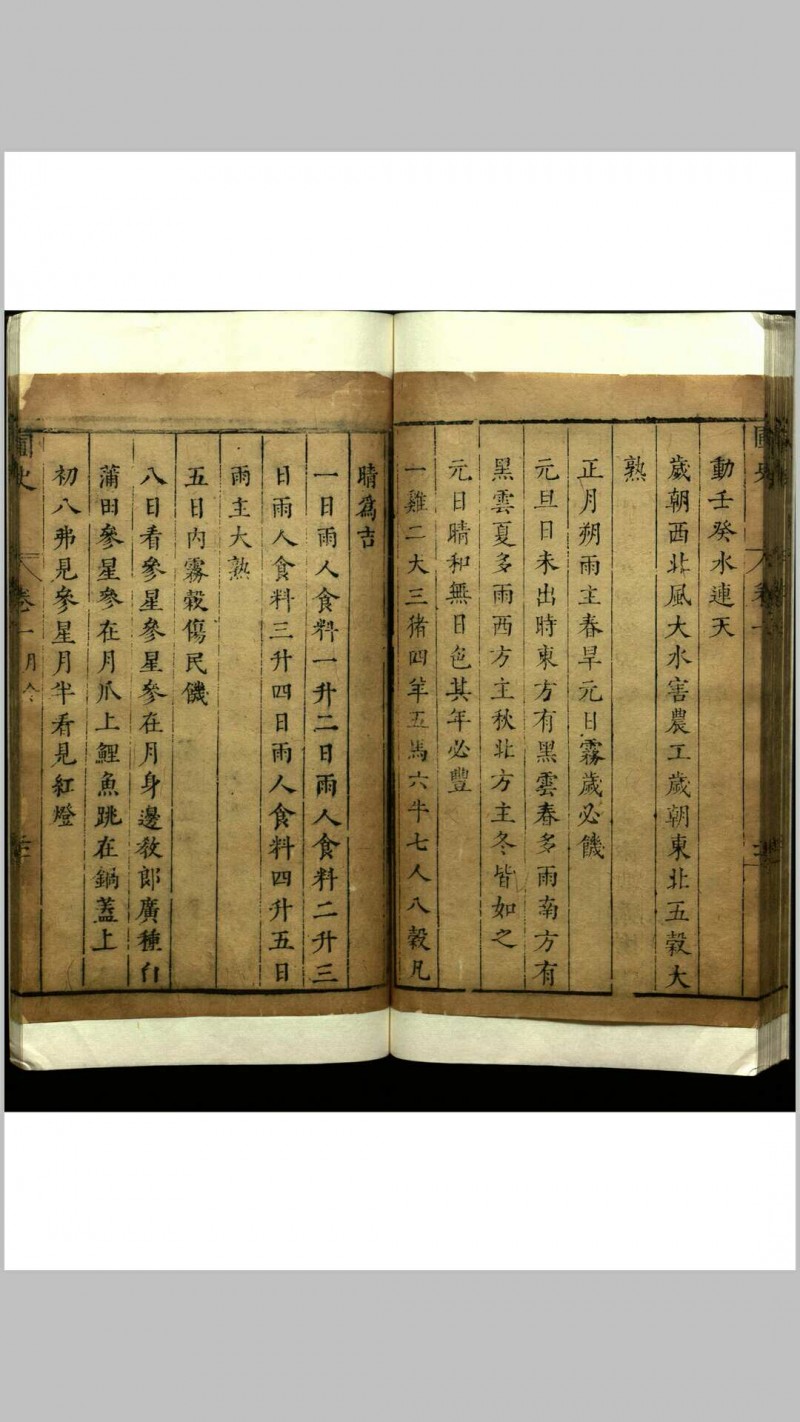 動壬癸水連天
歲朝西北風大水害農工歲朝東北五穀大
熟
正月朔雨主春旱元日霧歲必饑
元旦日未出時東方有黑雲春多雨南方有
黑雲夏多雨西方主秋北方主冬皆如之
元日晴和無日色其年必豐
一雞二犬三猪四羊五馬六牛七人八穀凡
晴爲吉
一日雨人食料一升二日雨人食料二升三
日雨人食料三升四日雨人食料四升五日
雨主大熟
五日内霧穀傷民饑
八日看參星參星參在月身邊教郎廣種白
蒲田參星參在月爪上鯉魚跳在鍋蓋上
初八弗見參星月半看見紅燈
卷一月令